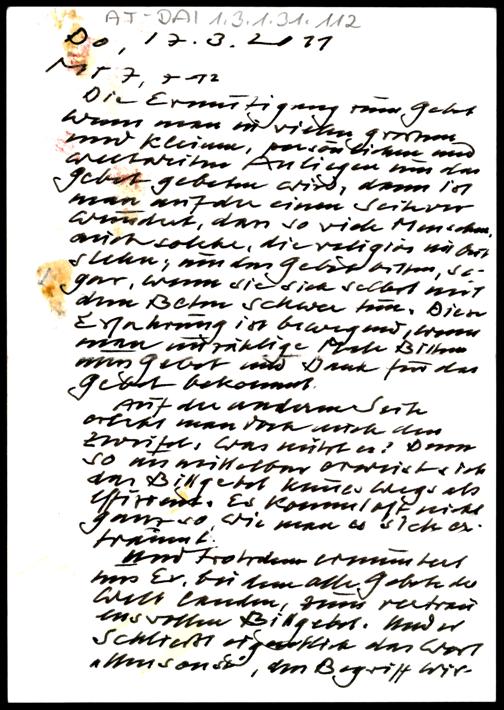 AT-DAI 1.3.1.31.112
Do, 17.3.2011
Mt 7, 7-12
Die Ermutigung zum Gebet
wenn man in vielen grossen
und kleinen, persönlichen und
weltweiten Anliegen um das
Gebet gebeten wird, dann ist
man auf der einen Seite ver
wundert, dass so viele Menschen,
auch solche, die religiös
stehen, um das Gebet bitten, so-
gar, wenn sie sich selbst mit
dem Beten schwer tun. Diese
Erfahrung ist bewegend, wenn
man unzählige Male Bitten
ums Gebet und Dank für das
Gebet bekommt.
Auf der anderen Seite
erlebt man doch auch den
Zweifel. Was nützt es? Denn
so unmittelbar erweist sich
das Bittgebet keineswegs als
effizient. Es kommt oft nicht
ganz so, wie man es sich er-
träumt.
Und trotzdem ermuntert
uns Er, bei dem alle Gebete der
Welt landen, zum vertrau
ensvollen Bittgebet. Und er
schliesst eigentlich das Wort
"umsonst", den Begriff wir-